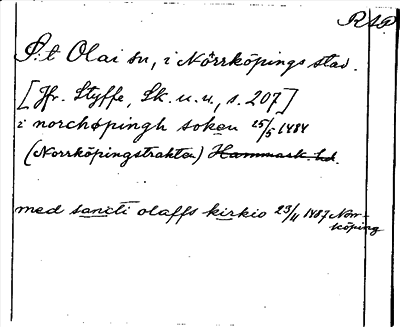 RAP.
S:t Olai sn, i Norrköpings stad.
[Jfr. Styffe, Sk. u. u., s. 207]
i norchøpingh soken 25/5 1484
(Norrköpingstrakten) Hammark. hd.
med sancti olaffs kirkio 23/11 1487 Norr-
köping